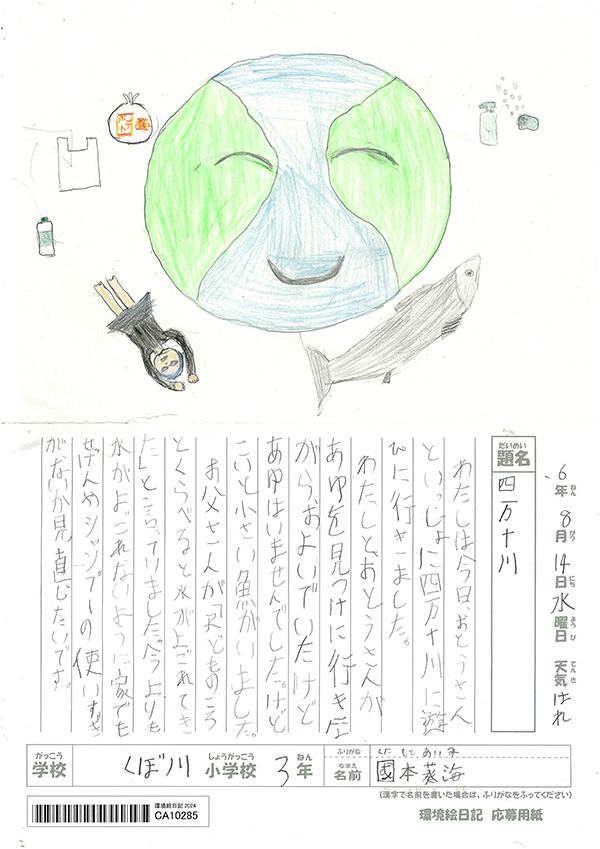 6年 8月 14日 水曜日 天気 はれ
ねん がつ にち ようび てんき
だいめい
題名
四万十川
わたしは今日、おとうさん
といっしょに四万十川に遊
びに行きました。
わたしと、おとうさんが
あゆを見つけに行き
がら、およいでいたけど
あゆはいませんでした。けど
こいと小さい魚がいました。
お父さんが「子どものころ
とくらべると水がよごれてき
た」と言っていました。今よりも
水がよごれないように家でも
せんめシャンプーの使いすぎ
がないか見直したいです。
がっこう
学校
くぼ川
しょうがっこう
小学校
3
ねん
年
ふりがな
なまえ
名前
國本
海
(漢字で名前を書いた場合は、ふりがなをふってください)
環境絵日記 2024
CA10285
環境絵日記 応募用紙